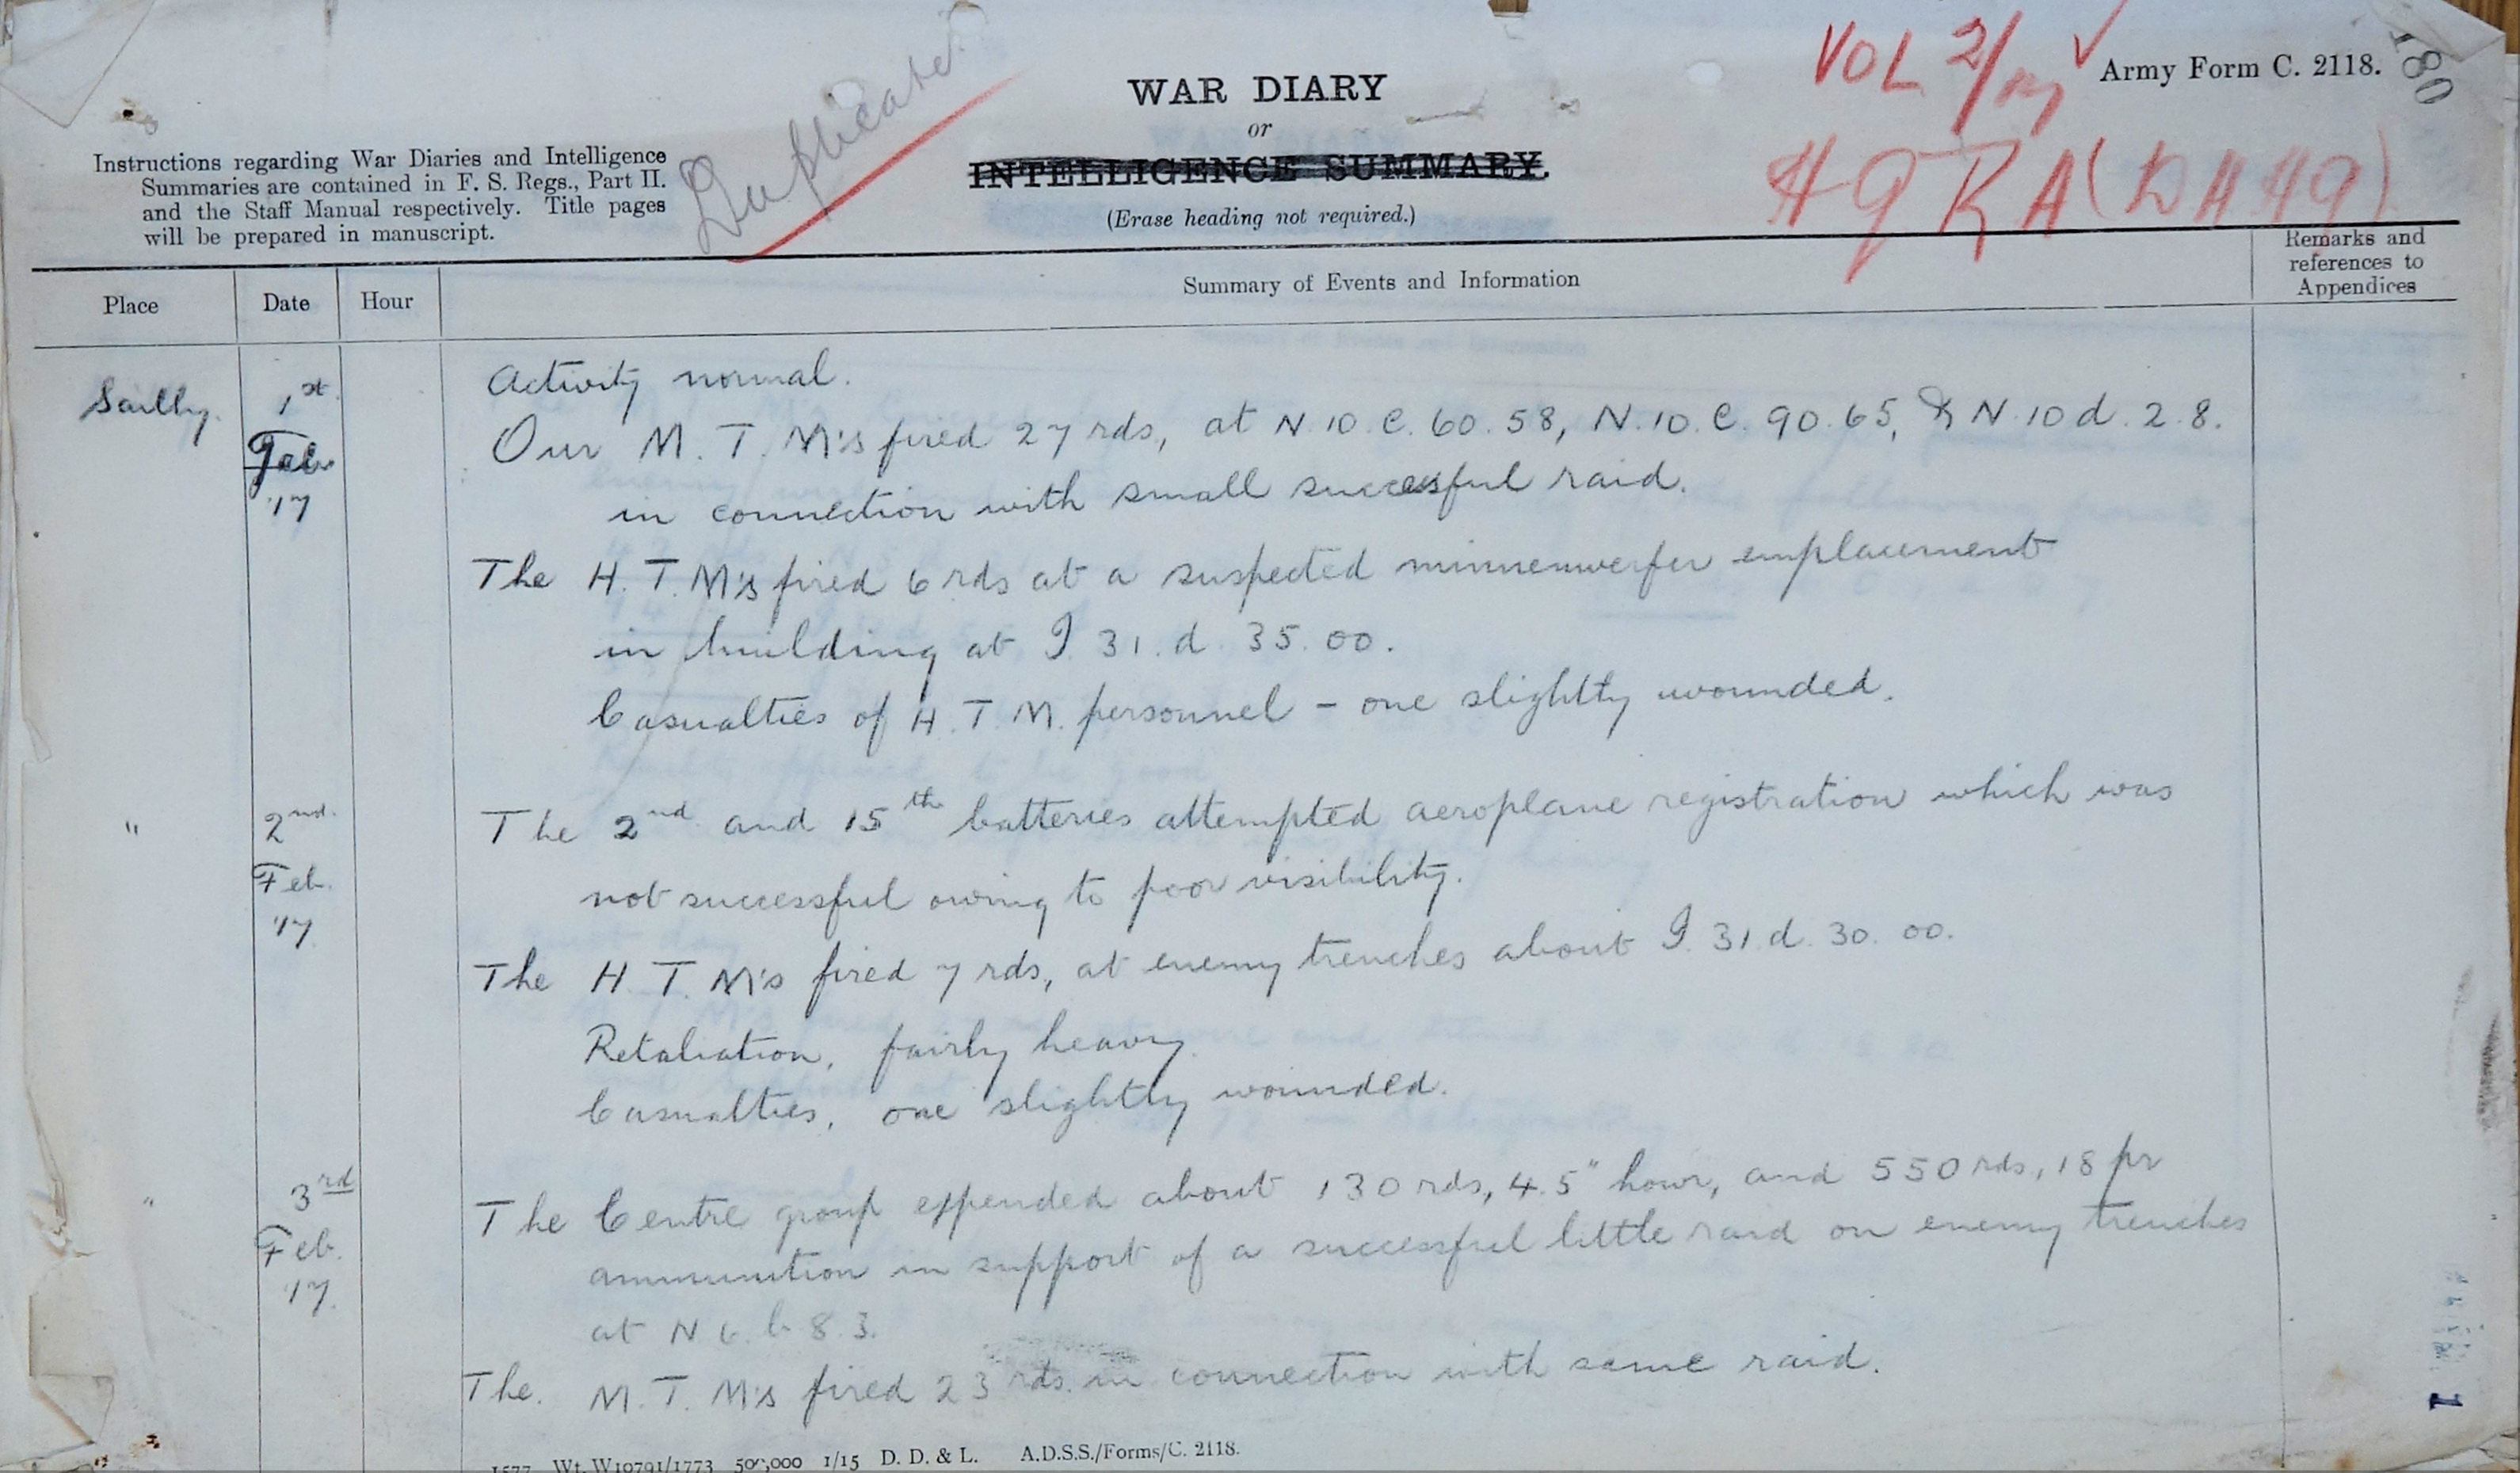 Duplicate
WAR DIARY
or
INTELLIGENCE SUMMARY.
(Erase heading not required.)
VOL 2/17
Army Form C. 2118.
180
Instructions regarding War Diaries and Intelligence
Summaries are contained in F. S. Regs., Part II.
and the Staff Manual respectively. Title pages
will be prepared in manuscript.
Place Date Hour Summary of Events and Information Remarks and references to Appendices
Sailly. 1st Feb '17 Activity normal.
Our M. T. M's fired 27 rds, at N. 10. C. 60. 58, N. 10. C. 90. 65, & N. 10 d. 2. 8.
in connection with small successful raid.
The H. T. M's fired 6 rds at a suspected minnenwerfer emplacement
in building at I. 31. d. 35. 00.
Casualties of H. T. M. personnel - one slightly wounded.
" 2nd. Feb. '17 The 2nd and 15th batteries attempted aeroplane registration which was
not successful owing to poor visibility.
The H. T. M's fired 7 rds, at enemy trenches about I. 31. d. 30. 00.
Retaliation, fairly heavy.
Casualties, one slightly wounded.
" 3rd Feb. '17. The Centre group expended about 130 rds, 4.5" how, and 550 rds, 18 pr
ammunition in support of a successful little raid on enemy trenches
at N 6. b. 8. 3.
The. M. T. M's fired 23 rds. in connection with same raid.
1577 Wt. W10791/1773 500,000 1/15 D. D. & L. A.D.S.S./Forms/C. 2118.
1